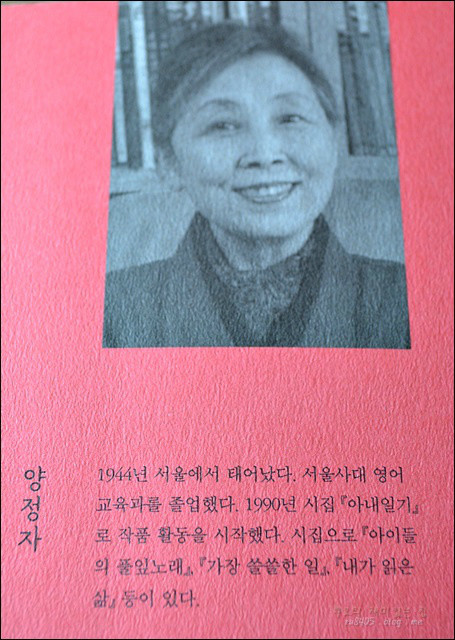 양정자
1944년 서울에서 태어났다. 서울사대 영어
교육과를 졸업했다. 1990년 시집 『아내일기』
로 작품 활동을 시작했다. 시집으로 『아이들
의 풀잎노래』, 『가장 쓸쓸한 일』, 『내가 읽은
삶』 등이 있다.